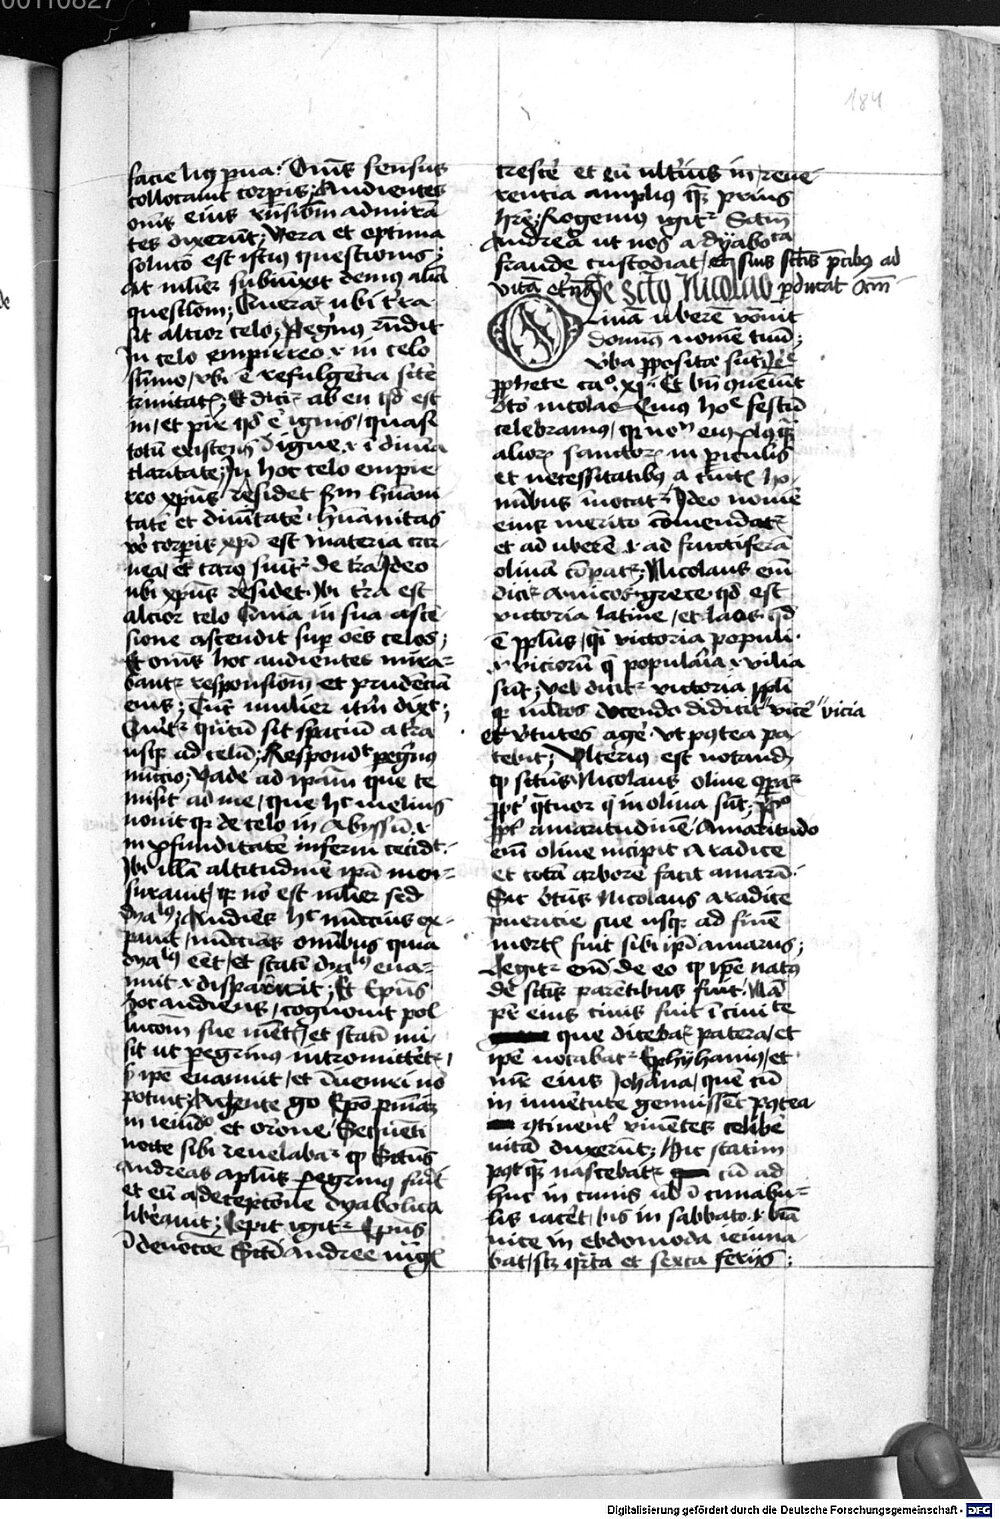 00110827
184
facie hōs pua. Omīs sensus
collocauit corporis. Audientes
omīs eius rūsiōem admirā
tes dixerūt; Vera et optima
soluco est istius questionis;
At mulier subiunxit demus aliā
questiōem; Querat ubi tra
sit altior celo; Pegrinus rūdit
In celo empirreo ⁊ in celo
sūmo, vbi ē refulgētia sctē
trinitatis; Et dicit ab en qd est
in, et pir qd ē ignis, quasi
totū existens ī igne ⁊ ī diuīa
claritate; In hoc celo empir
reo xpūs residet scdm hūani
tatē et diuītatē. hūanitas
vō corporis xpi est materia car
nea, et caro suit de tra Ideo
ubi xpūs residet. ibi tra est
altior celo Quia in sua ascē
sione ascendit sup oēs celos;
Et omīs hoc audientes mira-
bant responsionem et prudēciā
eius; Tūc mulier itm dixit;
Querit quātū sit spaciū a tra
usqz ad celū; Respondit pegrinus
nuncio; Vade ad ipam que te
misit ad me, que hc melius
nouit qz de celo in abyssū ⁊
in pfunditatē inferni cecidit.
Ibi illā altitudinē ipā men-
surauit, qz nō est mulier sed
dyalus; Audiēs hc nunccius ex-
pauit, nunctians omnibus quia
dyalus eēt, et statī dyalus eua-
nuit ⁊ disparuit; Et Epūs
hoc audiens, cognouit pol
lucōem sue mentis, et statī mi-
sit ut pegrinus intromitteret,
s ipē euanuit, et īueniri nō
potuit; Agente go Epō pniaz
in ieiuno et orōne Sequēti
nocte sibi reuelabat q Sctūs
Andreas aplūs pegrinus fuit
et eū a deceptione dyabolica
liberauit; Cepit igit Epūs
ī deuotōe Scti Andree mgis
crescē et eū ulterius in, reue
rentia amplius q prius
hrē; Rogemus igit Sctm
Andreā ut nos a dyabolica
fraude custodiat, et suis sctis pcibus ad
vitā etnā pducat Am
De scto Nicolao
Oliuā uberē vocauit
dominus nomē tuū;
vba pposita sūt Jere
pphete ca° xj. Et bn queniūt
bto nicolao Cuius hodie festū
celebramus, qz nomen eius plusqz
aliorum sanctorum in periculis
et necessitatibus a cunctis ho-
mībus īuocat Ideo nomē
eius merito cōmendat
et ad uberē ⁊ ad fructiferā
oliuā cōpat; Nicolaus em
dicit a nicos grece qd est
victoria latine, et laos qd
ē pplus, qi victoria populi.
i viciorū q populāria ⁊ vilia
sūt; vel dicit victoria ppli
qz mltos docendo didicit vice vicia
et vtutes agē. vt postea pa-
tebit; Vlterius est notand
q sctūs Nicolaus oliue cōpat
ppt qtuor q in oliua sūt; p°
ppt amaritudinē Amaritudo
em oliue incipit a radice
et totā arborē facit amarā.
Sic btūs Nicolaus a radice
puericie sue usqz ad finē
mortis fuit sibi ipi amarus;
Legit em de eo q ipē natus
de sctis parētibus fuit. Nā
pr eius ciuis fuit ī ciuitate
que dicebat patera, et
ipē vocabat Ephyhanius, et
mr eius Johāna, quē cū
in iuuētute genuissēt postea
qtinent viuētes celibē
vitā duxerūt; Hic statim
postqz nascebat cū ad
huc in cunis ul' ī cunabu-
lis iacēt, bis in sabbato. i. bīa
vice in ebdomoda ieiuna
bat, scz qrta et sexta ferijs;
Digitalisierung gefördert durch die Deutsche Forschungsgemeinschaft - DFG